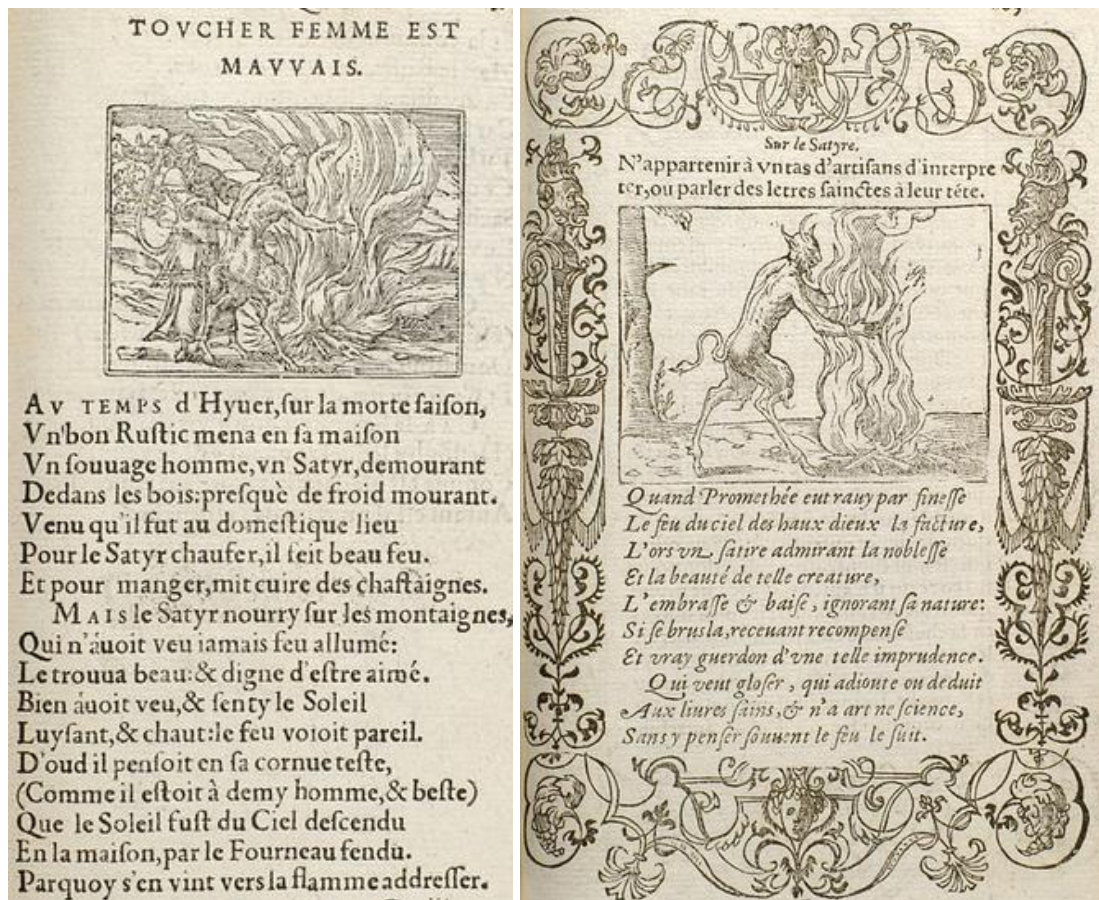 TOVCHER FEMME EST
MAVVAIS.
AV TEMPS d'Hyuer,ſur la morte ſaiſon,
Vn'bon Ruſtic mena en ſa maiſon
Vn ſouuage homme,vn Satyr,demourant
Dedans les bois:preſquè de froid mourant.
Venu qu'il fut au domeſtique lieu
Pour le Satyr chaufer,il feit beau feu.
Et pour manger,mit cuire des chaſtàignes.
MAIS le Satyr nourry ſur les montaignes,
Qui n'áuoit veu iamais feu allumé:
Le trouua beau:& digne d'eſtre aimé.
Bien áuoit veu,& ſenty le Soleil
Luyſant,& chaut:le feu voioit pareil.
D'oud il penſoit en ſa cornue teſte,
(Comme il eſtoit à demy homme,& beſte)
Que le Soleil fuſt du Ciel deſcendu
En la maiſon,par le Fourneau fendu.
Parquoy s'en vint vers la flamme addreſſer.
Sur le Satyre.
N'appartenir à vn tas d'artiſans d'interpre
ter,ou parler des letres ſainctes à leur téte.
Quand Promethée eut rauy par fineſſe
Le feu du ciel des haux dieux la facture,
L'ors vn ſatire admirant la nobleſſe
Et la beauté de telle creature,
L'embraſſe & baiſe, ignorant ſa nature:
Si ſe bruſla,receuant recompenſe
Et vray guerdon d'vne telle imprudence.
Qui veut gloſer, qui adioute ou deduit
Aux liures ſains,& n'a art ne ſcience,
Sans y penſer ſouuent le feu le ſuit.